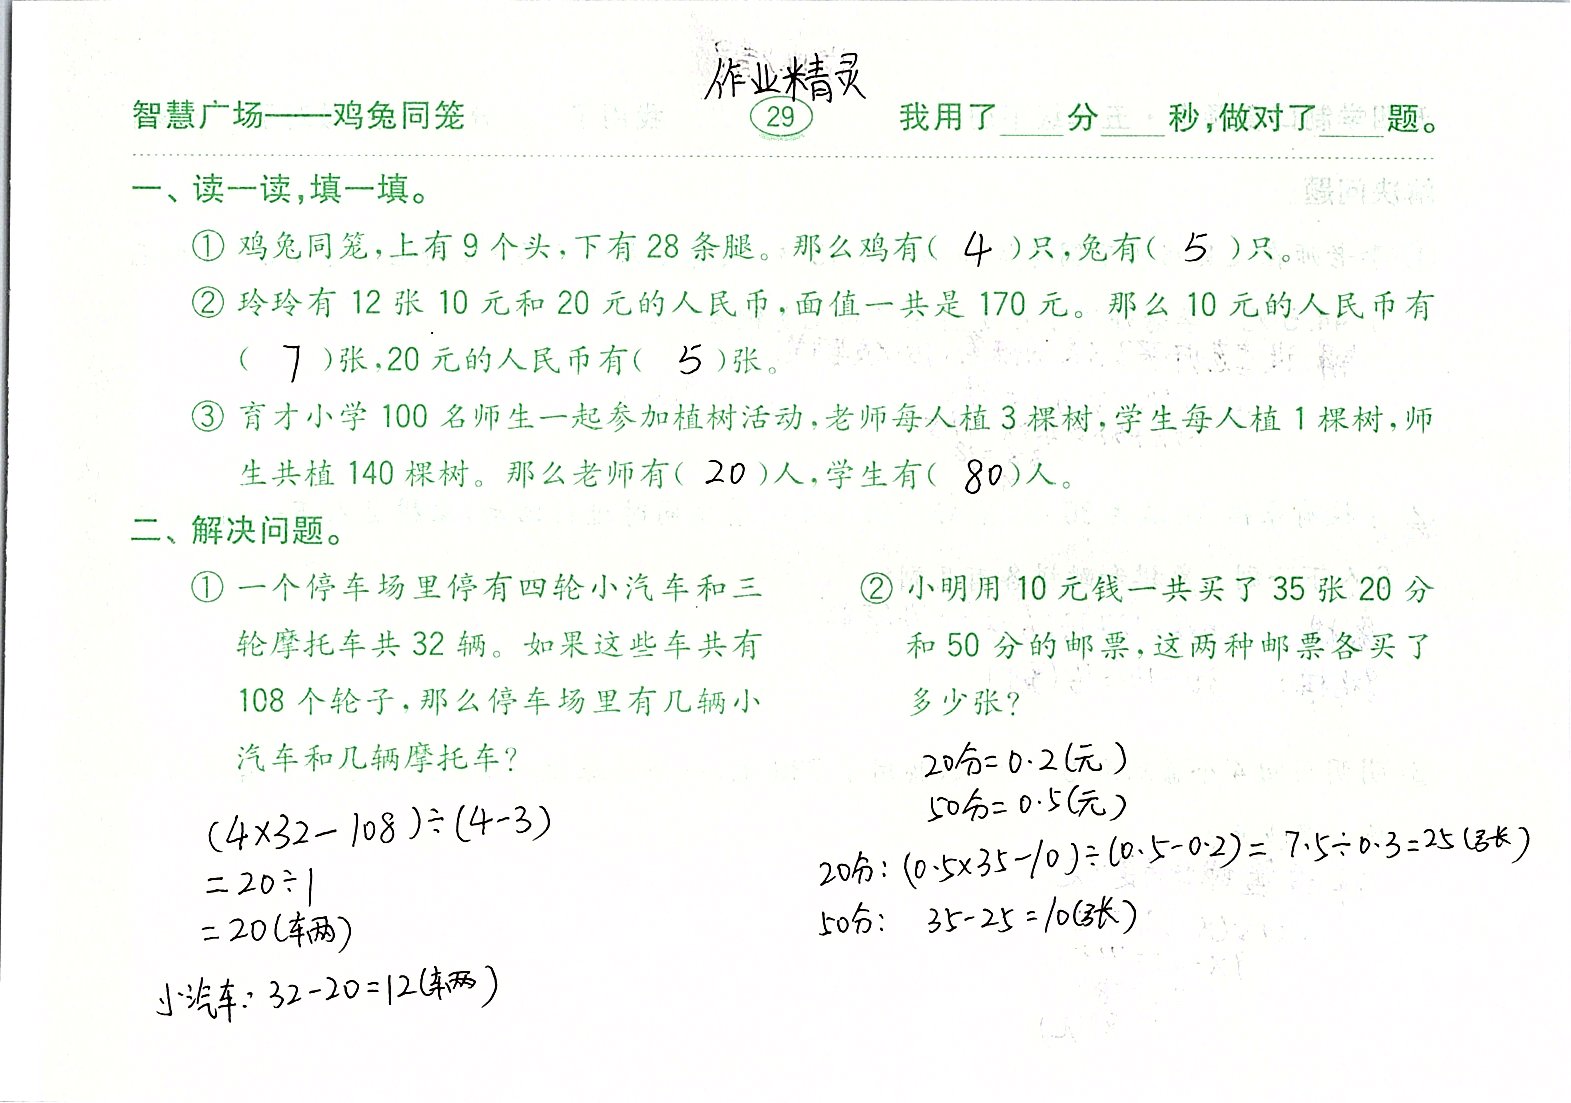 作业精灵
智慧广场——鸡兔同笼 29 我用了____分____秒,做对了____题。
一、读一读,填一填。
① 鸡兔同笼,上有9个头,下有28条腿。那么鸡有( 4 )只,兔有( 5 )只。
② 玲玲有12张10元和20元的人民币,面值一共是170元。那么10元的人民币有
( 7 )张,20元的人民币有( 5 )张。
③ 育才小学100名师生一起参加植树活动,老师每人植3棵树,学生每人植1棵树,师
生共植140棵树。那么老师有( 20 )人,学生有( 80 )人。
二、解决问题。
① 一个停车场里停有四轮小汽车和三
轮摩托车共32辆。如果这些车共有
108个轮子,那么停车场里有几辆小
汽车和几辆摩托车?
(4×32-108)÷(4-3)
=20÷1
=20(辆)
小汽车:32-20=12(辆)
② 小明用10元钱一共买了35张20分
和50分的邮票,这两种邮票各买了
多少张?
20分=0.2(元)
50分=0.5(元)
20分:(0.5×35-10)÷(0.5-0.2)=7.5÷0.3=25(张)
50分: 35-25=10(张)